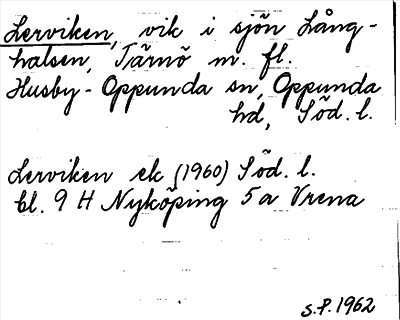 Lerviken, vik i sjön Lång-
halsen, Tärnö m. fl.
Husby-Oppunda sn, Oppunda
hd, Söd. l.
Lerviken ek (1960) Söd. l.
bl. 9 H Nyköping 5a Vrena
S.P. 1962